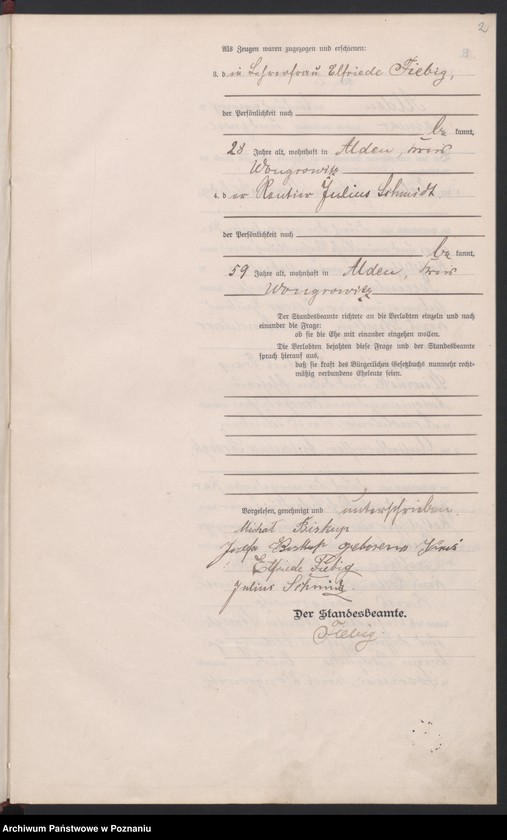 2
Als Zeugen waren zugezogen und erschienen:
3. die Lehrerfrau Elfriede Fiebig,
der Persönlichkeit nach
be kannt,
28 Jahre alt, wohnhaft in Alden, Kreis
Wongrowitz
4. der Rentier Julius Schmidt
der Persönlichkeit nach
be kannt,
59 Jahre alt, wohnhaft in Alden, Kreis
Wongrowitz
Der Standesbeamte richtete an die Verlobten einzeln und nach
einander die Frage:
ob sie die Ehe mit einander eingehen wollen.
Die Verlobten bejahten diese Frage und der Standesbeamte
sprach hierauf aus,
daß sie kraft des Bürgerlichen Gesetzbuchs nunmehr recht-
mäßig verbundene Eheleute seien.
Vorgelesen, genehmigt und unterschrieben
Michał Biskup
Josefa Biskup geborene
Elfriede Fiebig
Julius Schmidt.
Der Standesbeamte.
Fiebig.
Archiwum Państwowe w Poznaniu